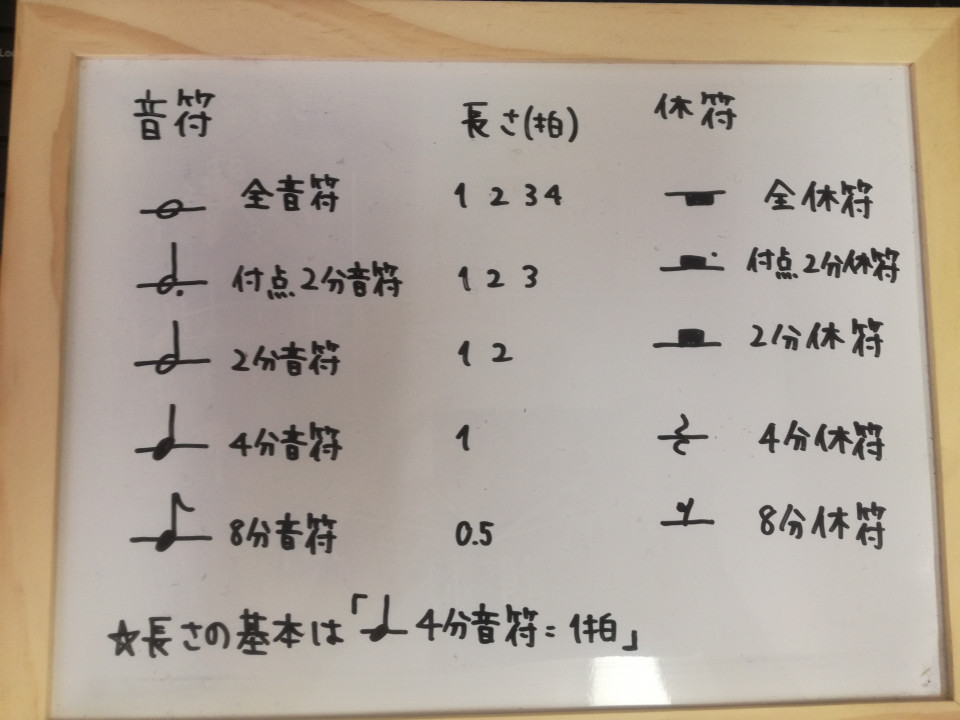 音符 長さ(拍) 休符
全音符 1 2 3 4 全休符
付点2分音符 1 2 3 付点2分休符
2分音符 1 2 2分休符
4分音符 1 4分休符
8分音符 0.5 8分休符
☆長さの基本は「♩4分音符=1拍」